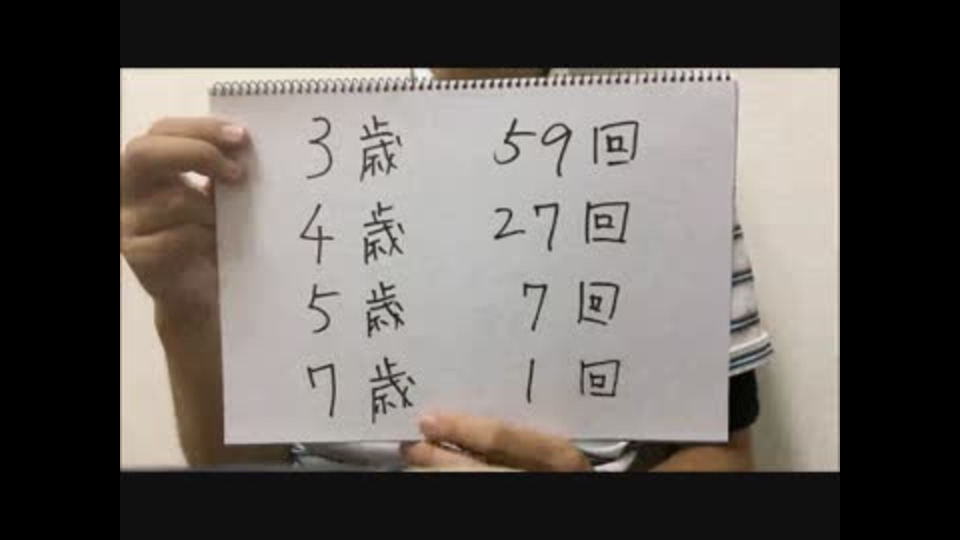 3歳 59回
4歳 27回
5歳 7回
7歳 1回